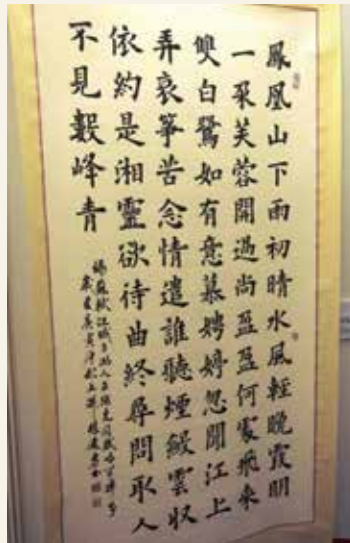 鳳凰山下雨初晴水風輕晚霞明
一朵芙蓉開過尚盈盈何處飛來
雙白鷺如有意慕娉婷忽聞江上
弄哀箏苦念情遣誰聽煙雲収
依約是湘靈欲待曲終尋問取人
不見數峰青
蘇軾江城子
歲在庚寅